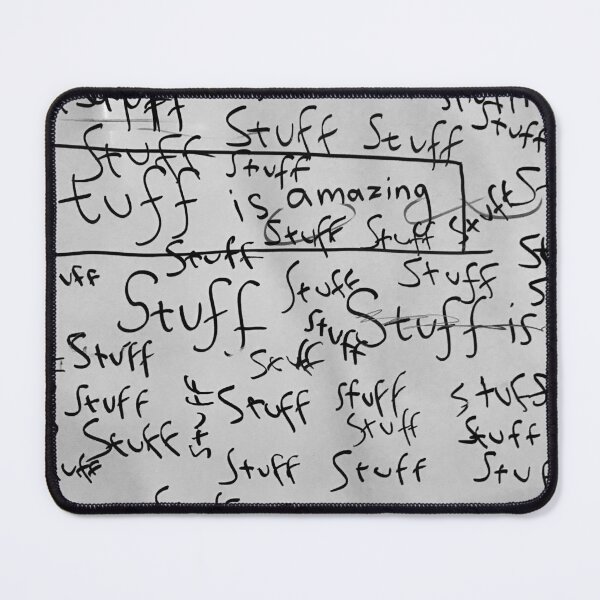 Stuff
Stuff Stuff Stuff
Stuff Stuff
tuff is amazing
Stuff Stuff
Stuff
uff Stuff Stuff
Stuff Stuff is
Stuff
Stuff Stuff
Stuff Stuff Stuff Stuff
Stuff
Stuff Stuff Stuff
uff Stuff Stuff Stu